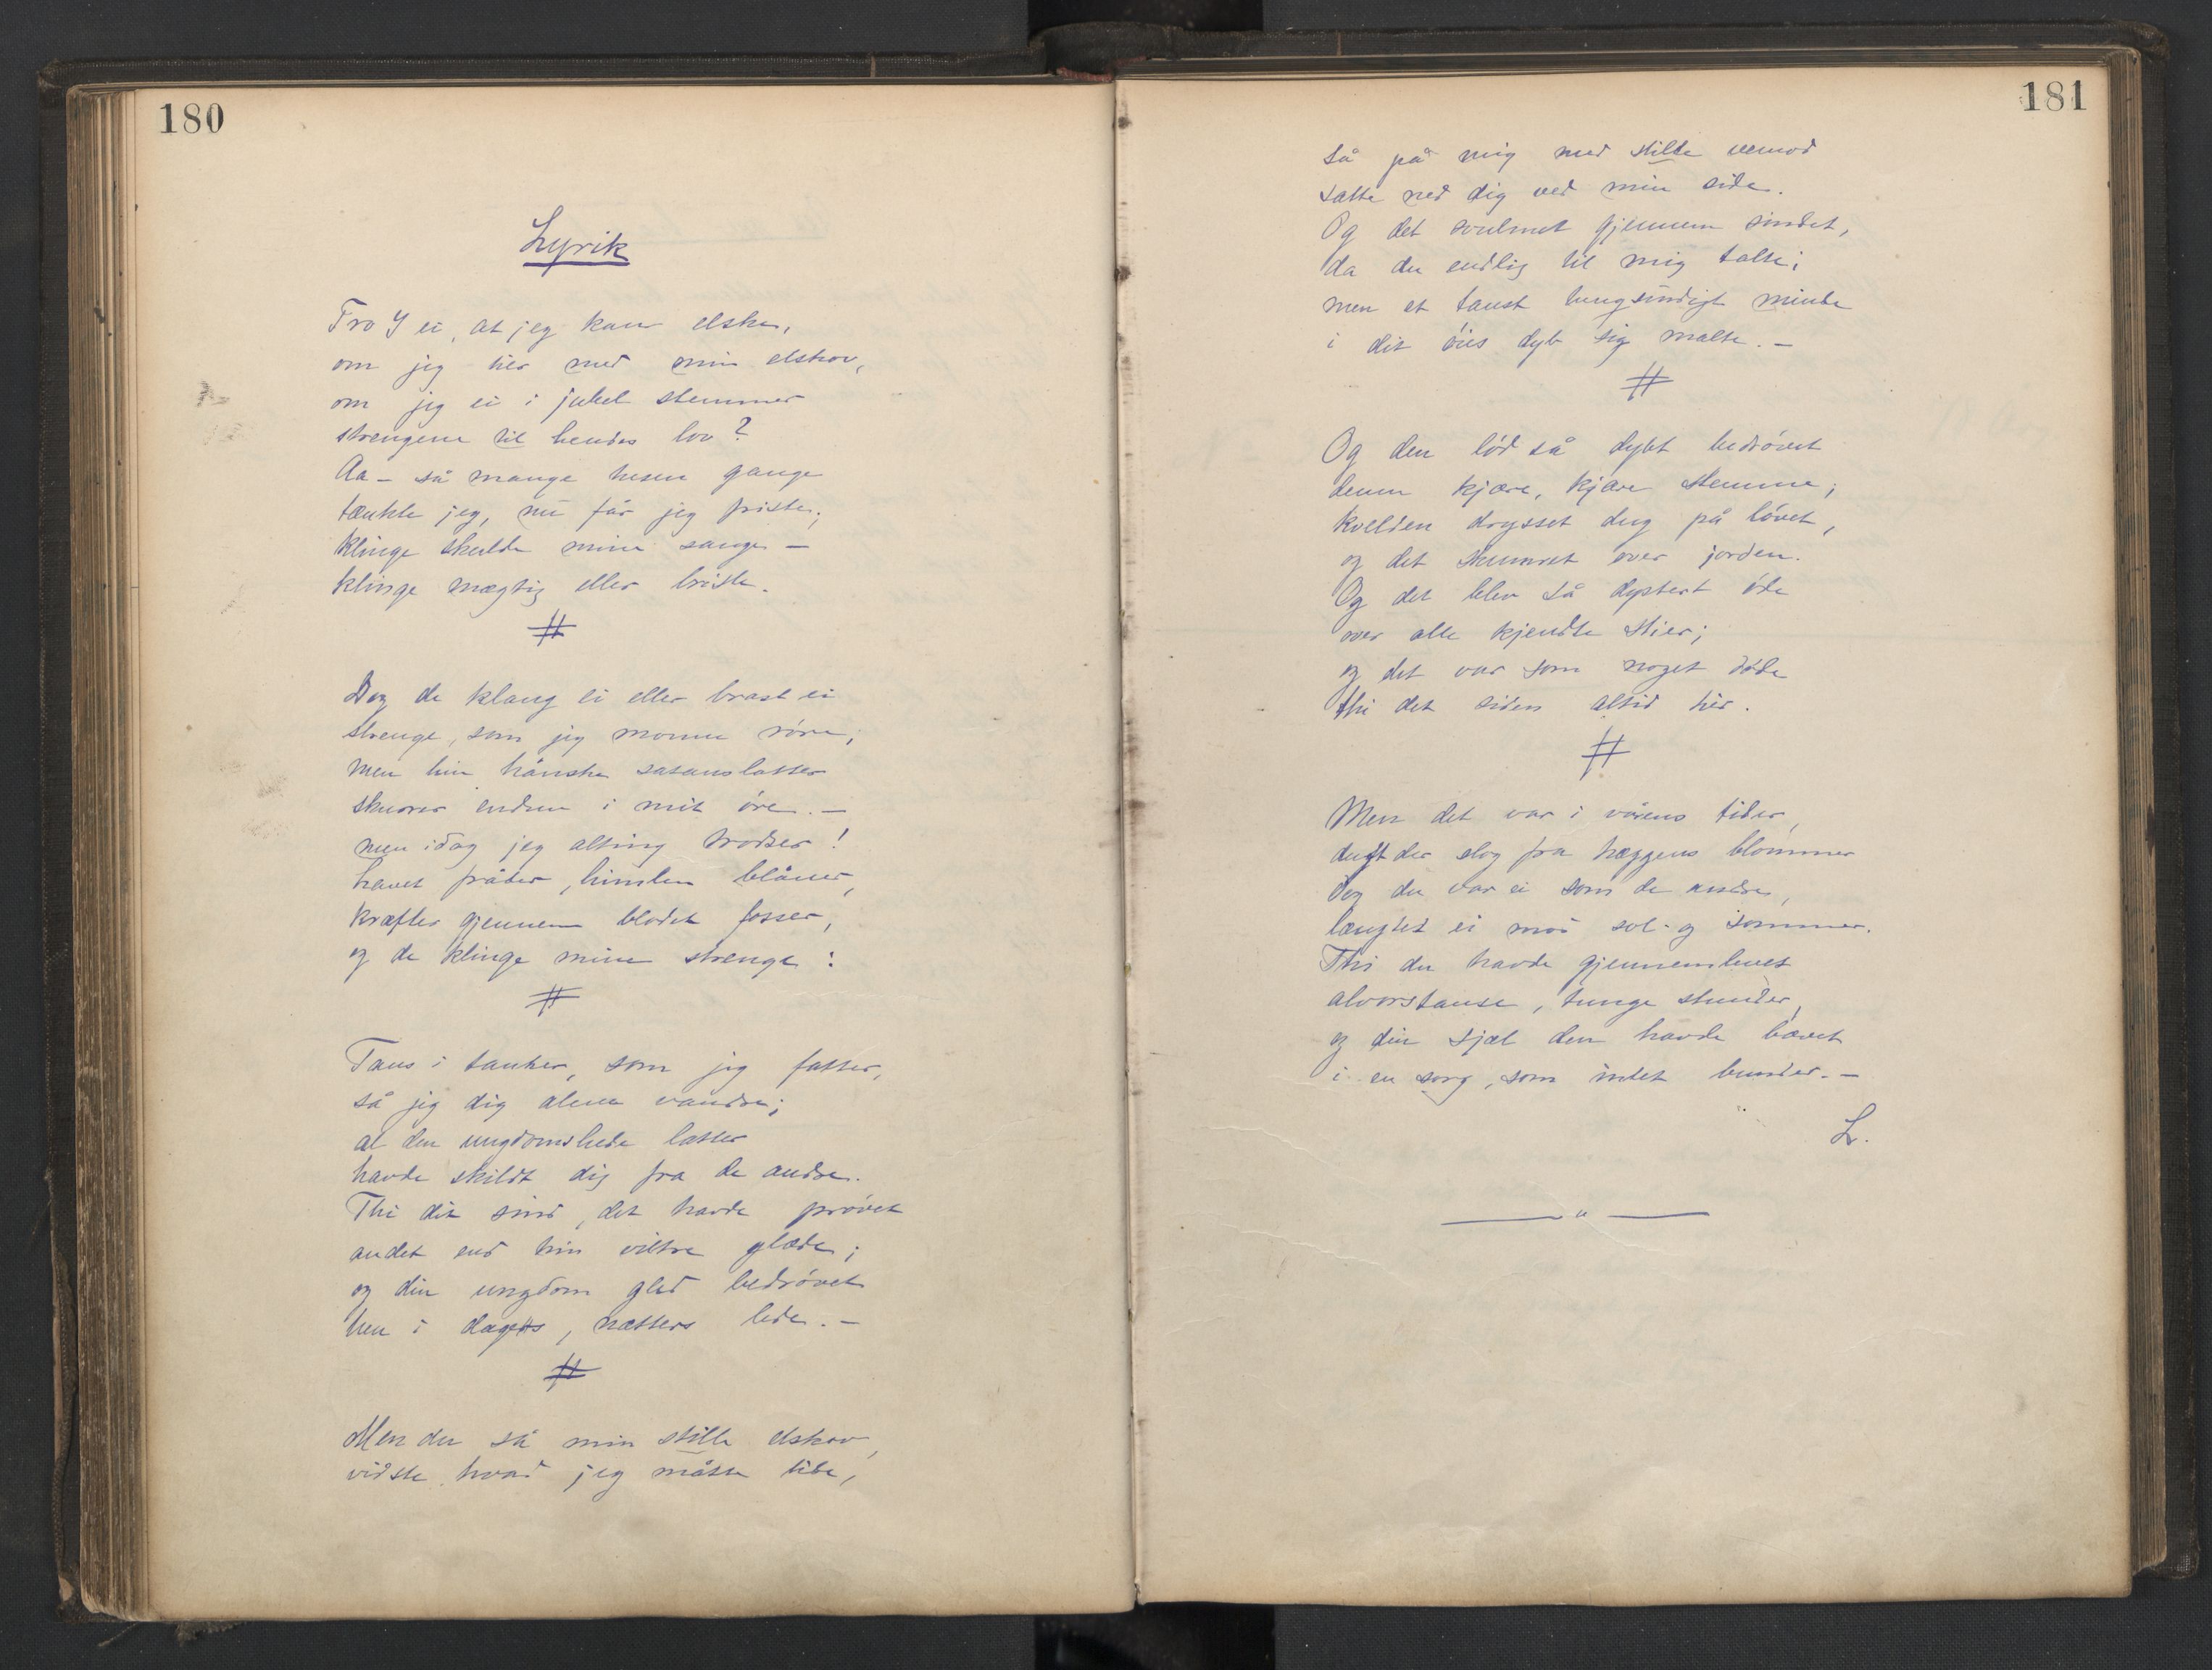 180
Lyrik
Tro I ei, at jeg kan elske,
om jeg tier med min elskov,
om jeg ei i jubel stemmer
strengene til hendes lov?
Aa – så mange tusen gange
tænkte jeg, nu får jeg friste;
klinge skulde mine sange –
klinge mægtig eller briste.
#
Dog de klang ei eller brast ei
strenge, som jeg monne røre;
men hin hånske satanslatter
skurrer endnu i mit øre. –
men idag jeg alting trodser!
havet fråder, himlen blåner,
kræfter gjennem blodet fosser,
og de klinge mine strenge:
#
Taus i tanker, som jeg fatter,
så jeg dig alene vandre;
al den ungdomshede latter
havde skildt dig fra de andre.
Thi dit sind, det havde prøvet
andet end hin viltre glæde;
og din ungdom gled bedrøvet
hen i dages, nætters lede. –
#
Men du så min stille elskov,
vidste hvad jeg måtte lide,
181
så på mig med stille vemod
satte ned dig ved min side.
Og det svulmet gjennem sindet,
da du endlig til mig talte;
men et taust tungsindigt minde
i dit øies dyb sig malte. –
#
Og den lød så dybt bedrøvet
denne kjære, kjære stemme;
kvelden drysset dug på løvet,
og det skumret over jorden.
Og det blev så dystert øde
over alle kjendte stier;
og det var som noget døde
thi det siden altid tier.
#
Men det var i vårens tider,
duft der slog fra hæggens blommer
dog du var ei som de andre,
længtet ei mod sol- og sommer.
Thi du havde gjennemlevet
alvorstause, tunge stunder,
og din sjæl den havde bævet
i en sorg, som intet bunder. –
L.
— " —